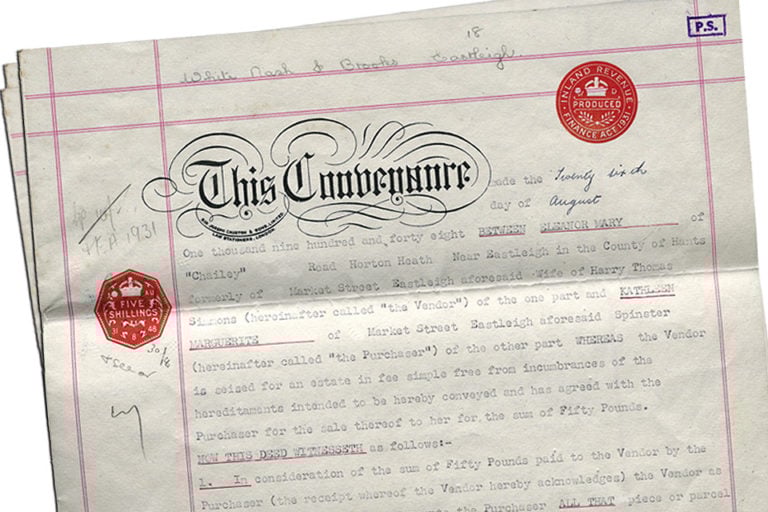 P.S.
18
White Nash & Brooks Eastleigh.
INLAND REVENUE
PRODUCED
FINANCE ACT 1931
This Conveyance made the Twenty sixth
day of August
SIR JOSEPH CAUSTON & SONS, LIMITED
LAW STATIONERS, LONDON.
1931
One thousand nine hundred and forty eight BETWEEN ELEANOR MARY of
"Chailey" Road Horton Heath Near Eastleigh in the County of Hants
formerly of Market Street Eastleigh aforesaid Wife of Herry Thomas
FIVE
SHILLINGS
31 8 48
Simmons (hereinafter called "the Vendor") of the one part and KATHLEEN
MARGUERITE of Market Street Eastleigh aforesaid Spinster
(hereinafter called "the Purchaser") of the other part WHEREAS the Vendor
is seised for an estate in fee simple free from incumbrances of the
hereditaments intended to be hereby conveyed and has agreed with the
Purchaser for the sale thereof to her for the sum of Fifty Pounds.
NOW THIS DEED WITNESSETH as follows:-
1. In consideration of the sum of Fifty Pounds paid to the Vendor by the
Purchaser (the receipt whereof the Vendor hereby acknowledges) the Vendor as
the Purchaser ALL THAT piece or parcel